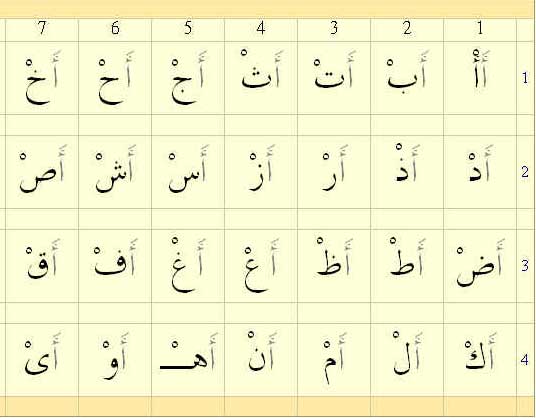 1 2 3 4 5 6 7
1 أَأْ أَبْ أَتْ أَثْ أَجْ أَحْ أَخْ
2 أَدْ أَذْ أَرْ أَزْ أَسْ أَشْ أَصْ
3 أَضْ أَطْ أَظْ أَعْ أَغْ أَفْ أَقْ
4 أَكْ أَلْ أَمْ أَنْ أَهْـ أَوْ أَىْ